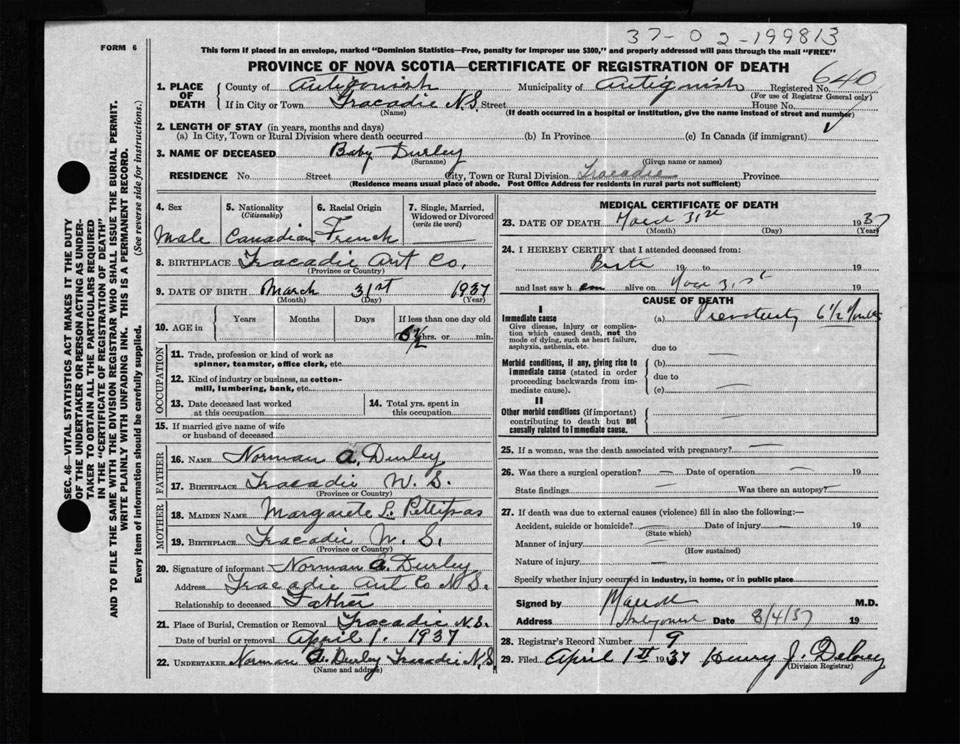 37-02-199813
FORM 6
This form if placed in an envelope, marked "Dominion Statistics—Free, penalty for improper use $300," and properly addressed will pass through the mail "FREE"
PROVINCE OF NOVA SCOTIA—CERTIFICATE OF REGISTRATION OF DEATH
640
1. PLACE OF DEATH
County of Antigonish Municipality of Antigonish Registered No.
(For use of Registrar General only)
If in City or Town Tracadie N.S. Street House No.
(Name) (If death occurred in a hospital or institution, give the name instead of street and number)
2. LENGTH OF STAY (in years, months and days)
(a) In City, Town or Rural Division where death occurred (b) In Province (c) In Canada (if immigrant)
3. NAME OF DECEASED Baby Durley
(Surname) (Given name or names)
RESIDENCE No. Street City, Town or Rural Division Tracadie Province
(Residence means usual place of abode. Post Office Address for residents in rural parts not sufficient)
4. Sex 5. Nationality (Citizenship) 6. Racial Origin 7. Single, Married, Widowed or Divorced (write the word)
Male Canadian French —
8. BIRTHPLACE Tracadie Ant Co.
(Province or Country)
9. DATE OF BIRTH March 31st 1937
(Month) (Day) (Year)
10. AGE in Years Months Days If less than one day old
hrs. or min.
OCCUPATION
11. Trade, profession or kind of work as spinner, teamster, office clerk, etc.
12. Kind of industry or business, as cotton-mill, lumbering, bank, etc.
13. Date deceased last worked at this occupation 14. Total yrs. spent in this occupation
15. If married give name of wife or husband of deceased
FATHER
16. NAME Norman A. Durley
17. BIRTHPLACE Tracadie N.S.
(Province or Country)
MOTHER
18. MAIDEN NAME Margarete L. Pettipas
19. BIRTHPLACE Tracadie N.S.
(Province or Country)
20. Signature of informant Norman A. Durley
Address Tracadie Ant Co N.S.
Relationship to deceased Father
21. Place of Burial, Cremation or Removal Tracadie N.S.
Date of burial or removal April 1. 1937
22. UNDERTAKER Norman A. Durley Tracadie N.S.
(Name and address)
MEDICAL CERTIFICATE OF DEATH
23. DATE OF DEATH March 31st 1937
(Month) (Day) (Year)
24. I HEREBY CERTIFY that I attended deceased from:
Birth 19 to 19
and last saw h im alive on March 31st 19
CAUSE OF DEATH
I
Immediate cause (a) Prematurity 6 1/2 months
Give disease, injury or complication which caused death, not the mode of dying, such as heart failure, asphyxia, asthenia, etc.
due to —
Morbid conditions, if any, giving rise to immediate cause (stated in order proceeding backwards from immediate cause).
(b)
due to —
(c)
II
Other morbid conditions (if important) contributing to death but not causally related to immediate cause. —
25. If a woman, was the death associated with pregnancy? —
26. Was there a surgical operation? — Date of operation — 19
State findings — Was there an autopsy? —
27. If death was due to external causes (violence) fill in also the following:—
Accident, suicide or homicide? — Date of injury — 19
(State which)
Manner of injury —
(How sustained)
Nature of injury —
Specify whether injury occurred in industry, in home, or in public place
Signed by M.D.
Address Antigonish Date 8/4/37 19
28. Registrar's Record Number 9
29. Filed April 1st 1937 Henry J. Delorey
(Division Registrar)
SEC. 46—VITAL STATISTICS ACT MAKES IT THE DUTY
OF THE UNDERTAKER OR PERSON ACTING AS UNDER-
TAKER TO OBTAIN ALL THE PARTICULARS REQUIRED
IN THE "CERTIFICATE OF REGISTRATION OF DEATH"
AND TO FILE THE SAME WITH THE DIVISION REGISTRAR WHO SHALL ISSUE THE BURIAL PERMIT.
WRITE PLAINLY WITH UNFADING INK. THIS IS A PERMANENT RECORD.
Every item of information should be carefully supplied. (See reverse side for instructions.)